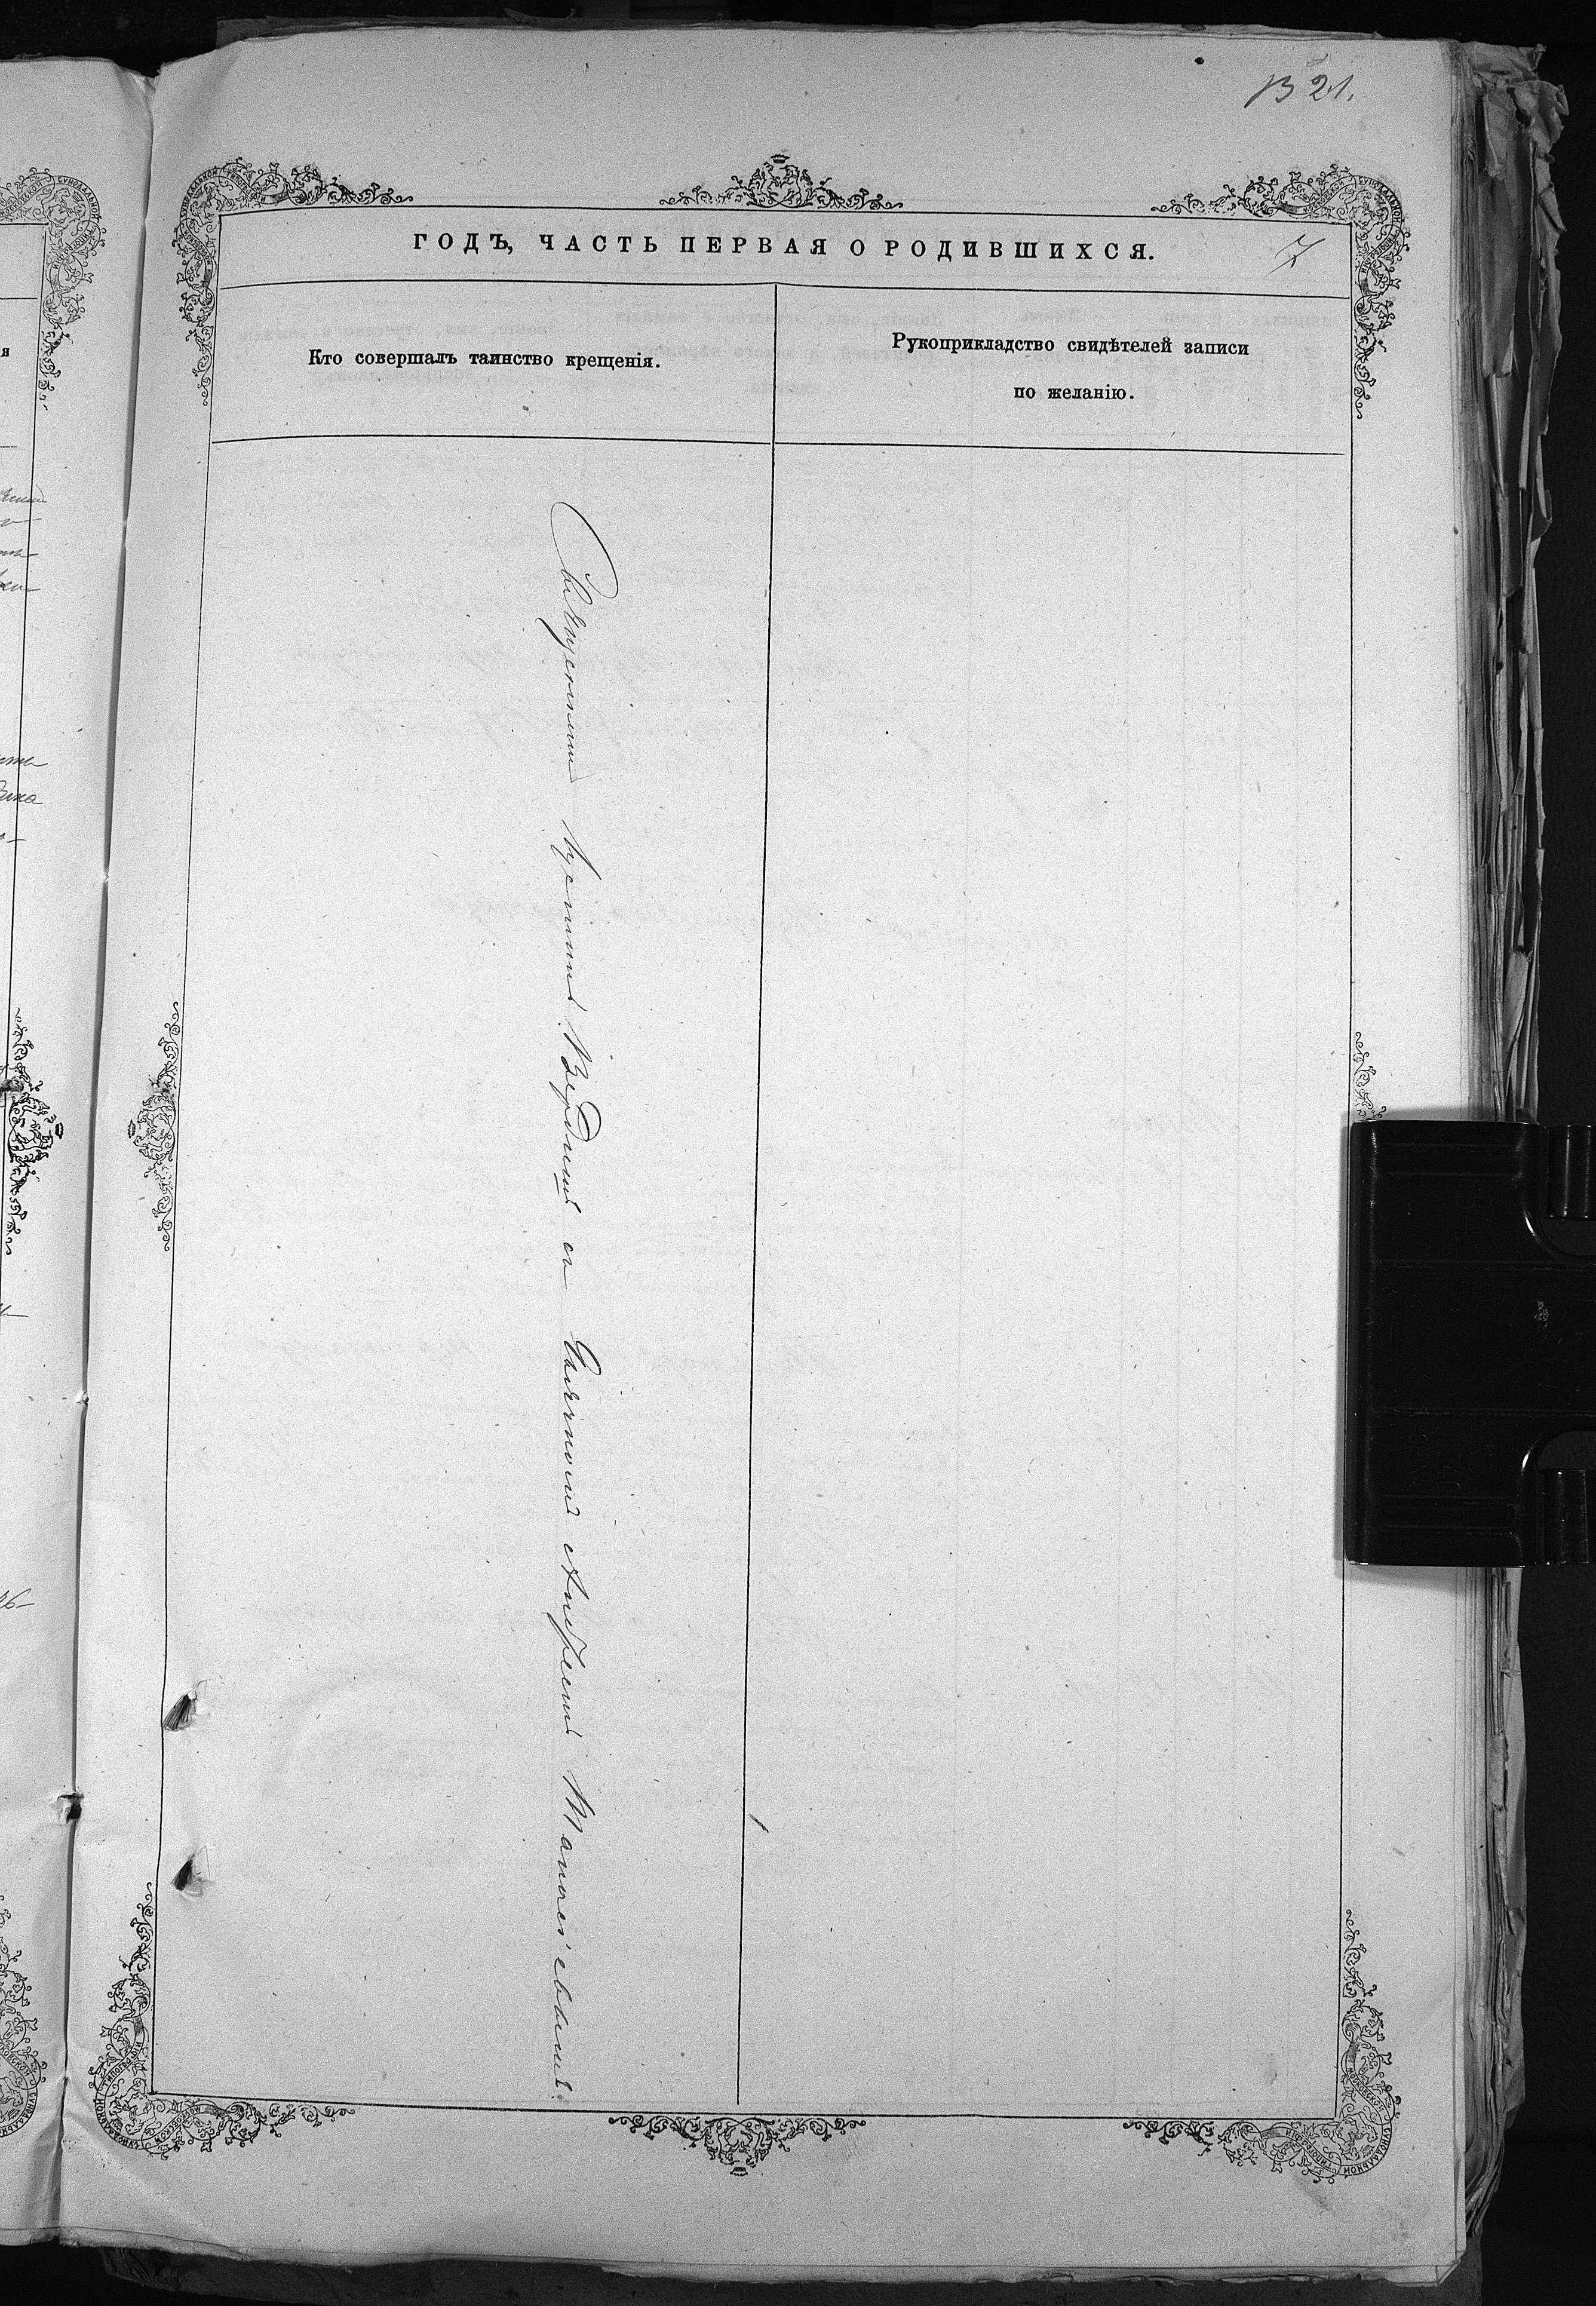 В 21.
ГОДЪ, ЧАСТЬ ПЕРВАЯ О РОДИВШИХСЯ.
7
Кто совершалъ таинство крещенія.
Рукоприкладство свидѣтелей записи
по желанію.
Священникъ Іустинъ Вердинъ съ Дьячкомъ Андреемъ Манасьевымъ.